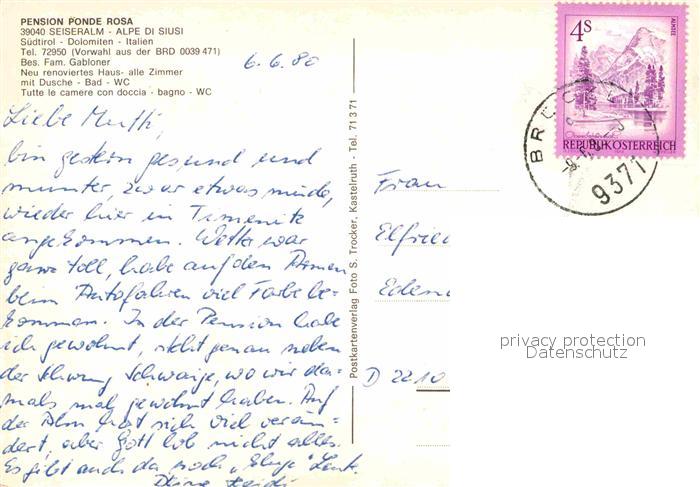 PENSION PONDE ROSA
39040 SEISERALM - ALPE DI SIUSI
Südtirol - Dolomiten - Italien
Tel. 72950 (Vorwahl aus der BRD 0039 471)
Bes. Fam. Gabloner
Neu renoviertes Haus- alle Zimmer
mit Dusche - Bad - WC
Tutte le camere con doccia - bagno - WC
6.6.80
Liebe Mutti,
bin gestern gesund und
munter, zwar etwas müde,
wieder hier in
angekommen. Wetter war
ganz toll, habe auf den Armen
beim Autofahren viel Farbe be-
kommen. In der Pension habe
ich gewohnt, nicht genau neben
der Schwaige, wo wir da-
mals mal gewohnt haben. Auf
der Alm hat sich viel verän-
dert, aber Gott lob nicht alles.
Es gibt auch da noch Leute.
Deine Heidi
Postkartenverlag Foto S. Trocker, Kastelruth - Tel. 71 3 71
4S
ALMSEE
REPUBLIK ÖSTERREICH
BRÜC
9371
Frau
Elfried
Eden
D 2210
privacy protection
Datenschutz